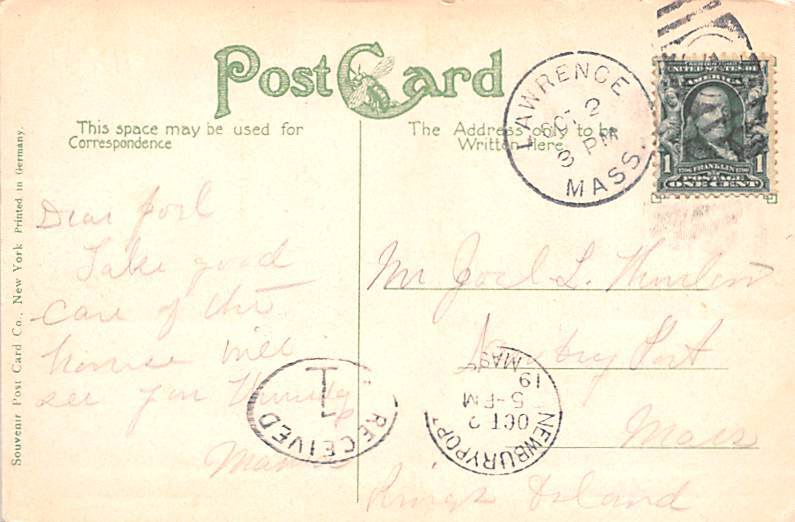 Post Card
This space may be used for
Correspondence
The Address only to be
Written Here.
LAWRENCE
OCT 2
3 PM
MASS.
UNITED STATES OF
AMERICA
1 FRANKLIN 1
POSTAGE
ONE CENT
Souvenir Post Card Co., New York Printed in Germany.
Dear Joel
Take good
care of the
house will
see you
Mr Joel L.
Newbury Port
Mass
Rings Island
RECEIVED
1
NEWBURYPOR
OCT 2
5-PM
19
MASS